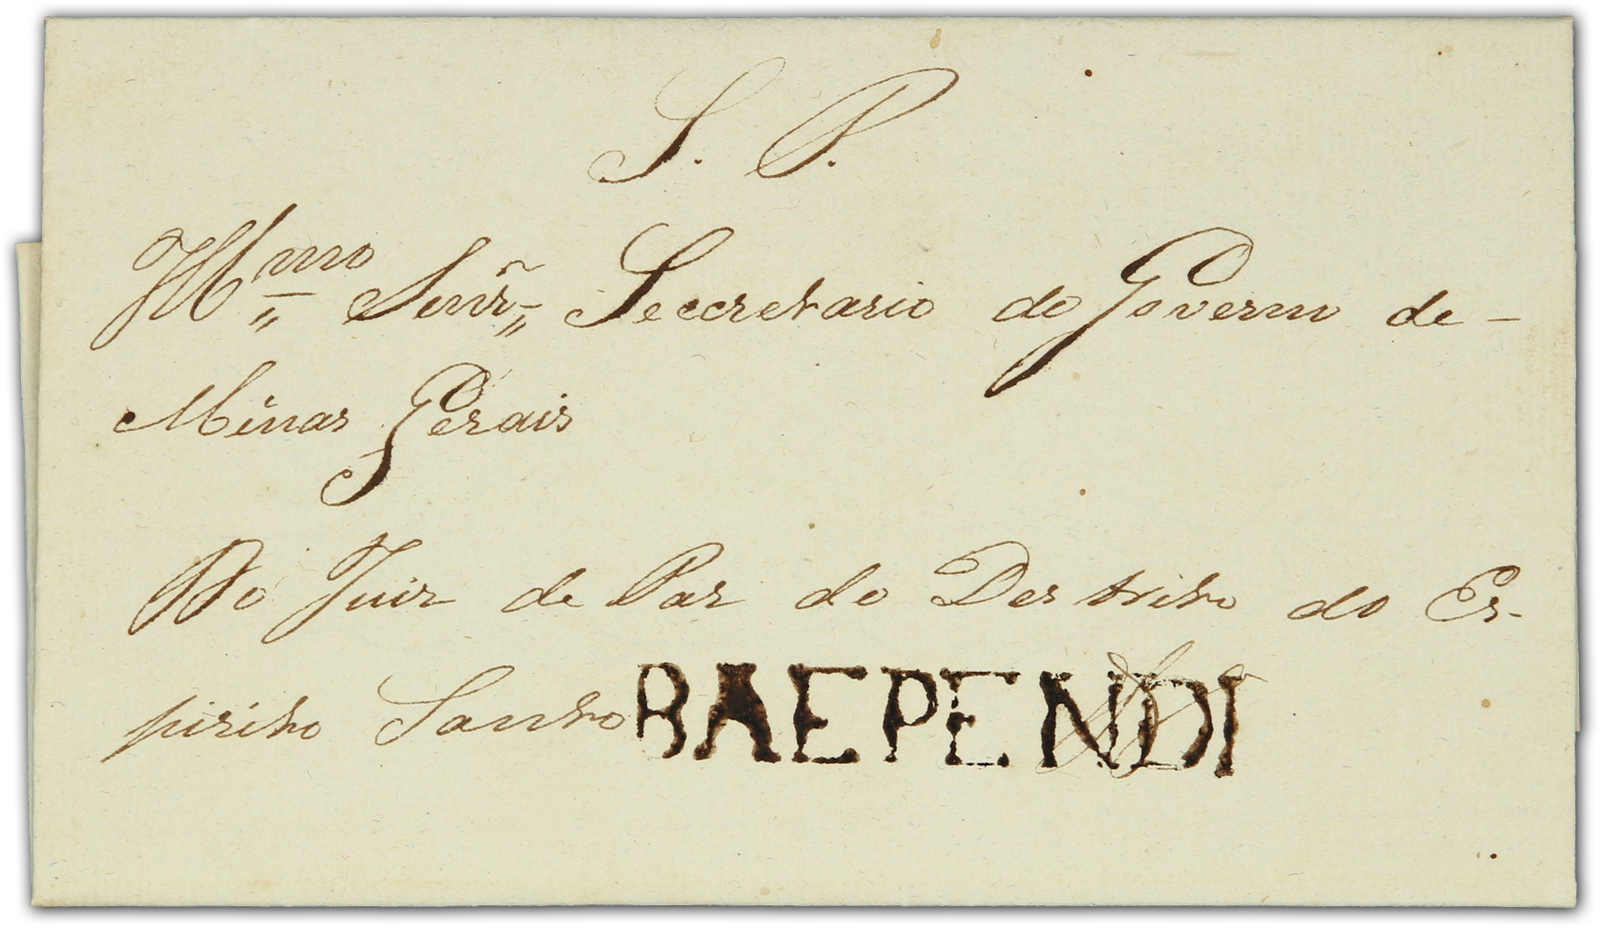 S. P.
Illmo Senr Seccretario do Governo de
Minas Gerais
Do Juiz de Paz do Destrito do Es-
pirito Santo BAEPENDI